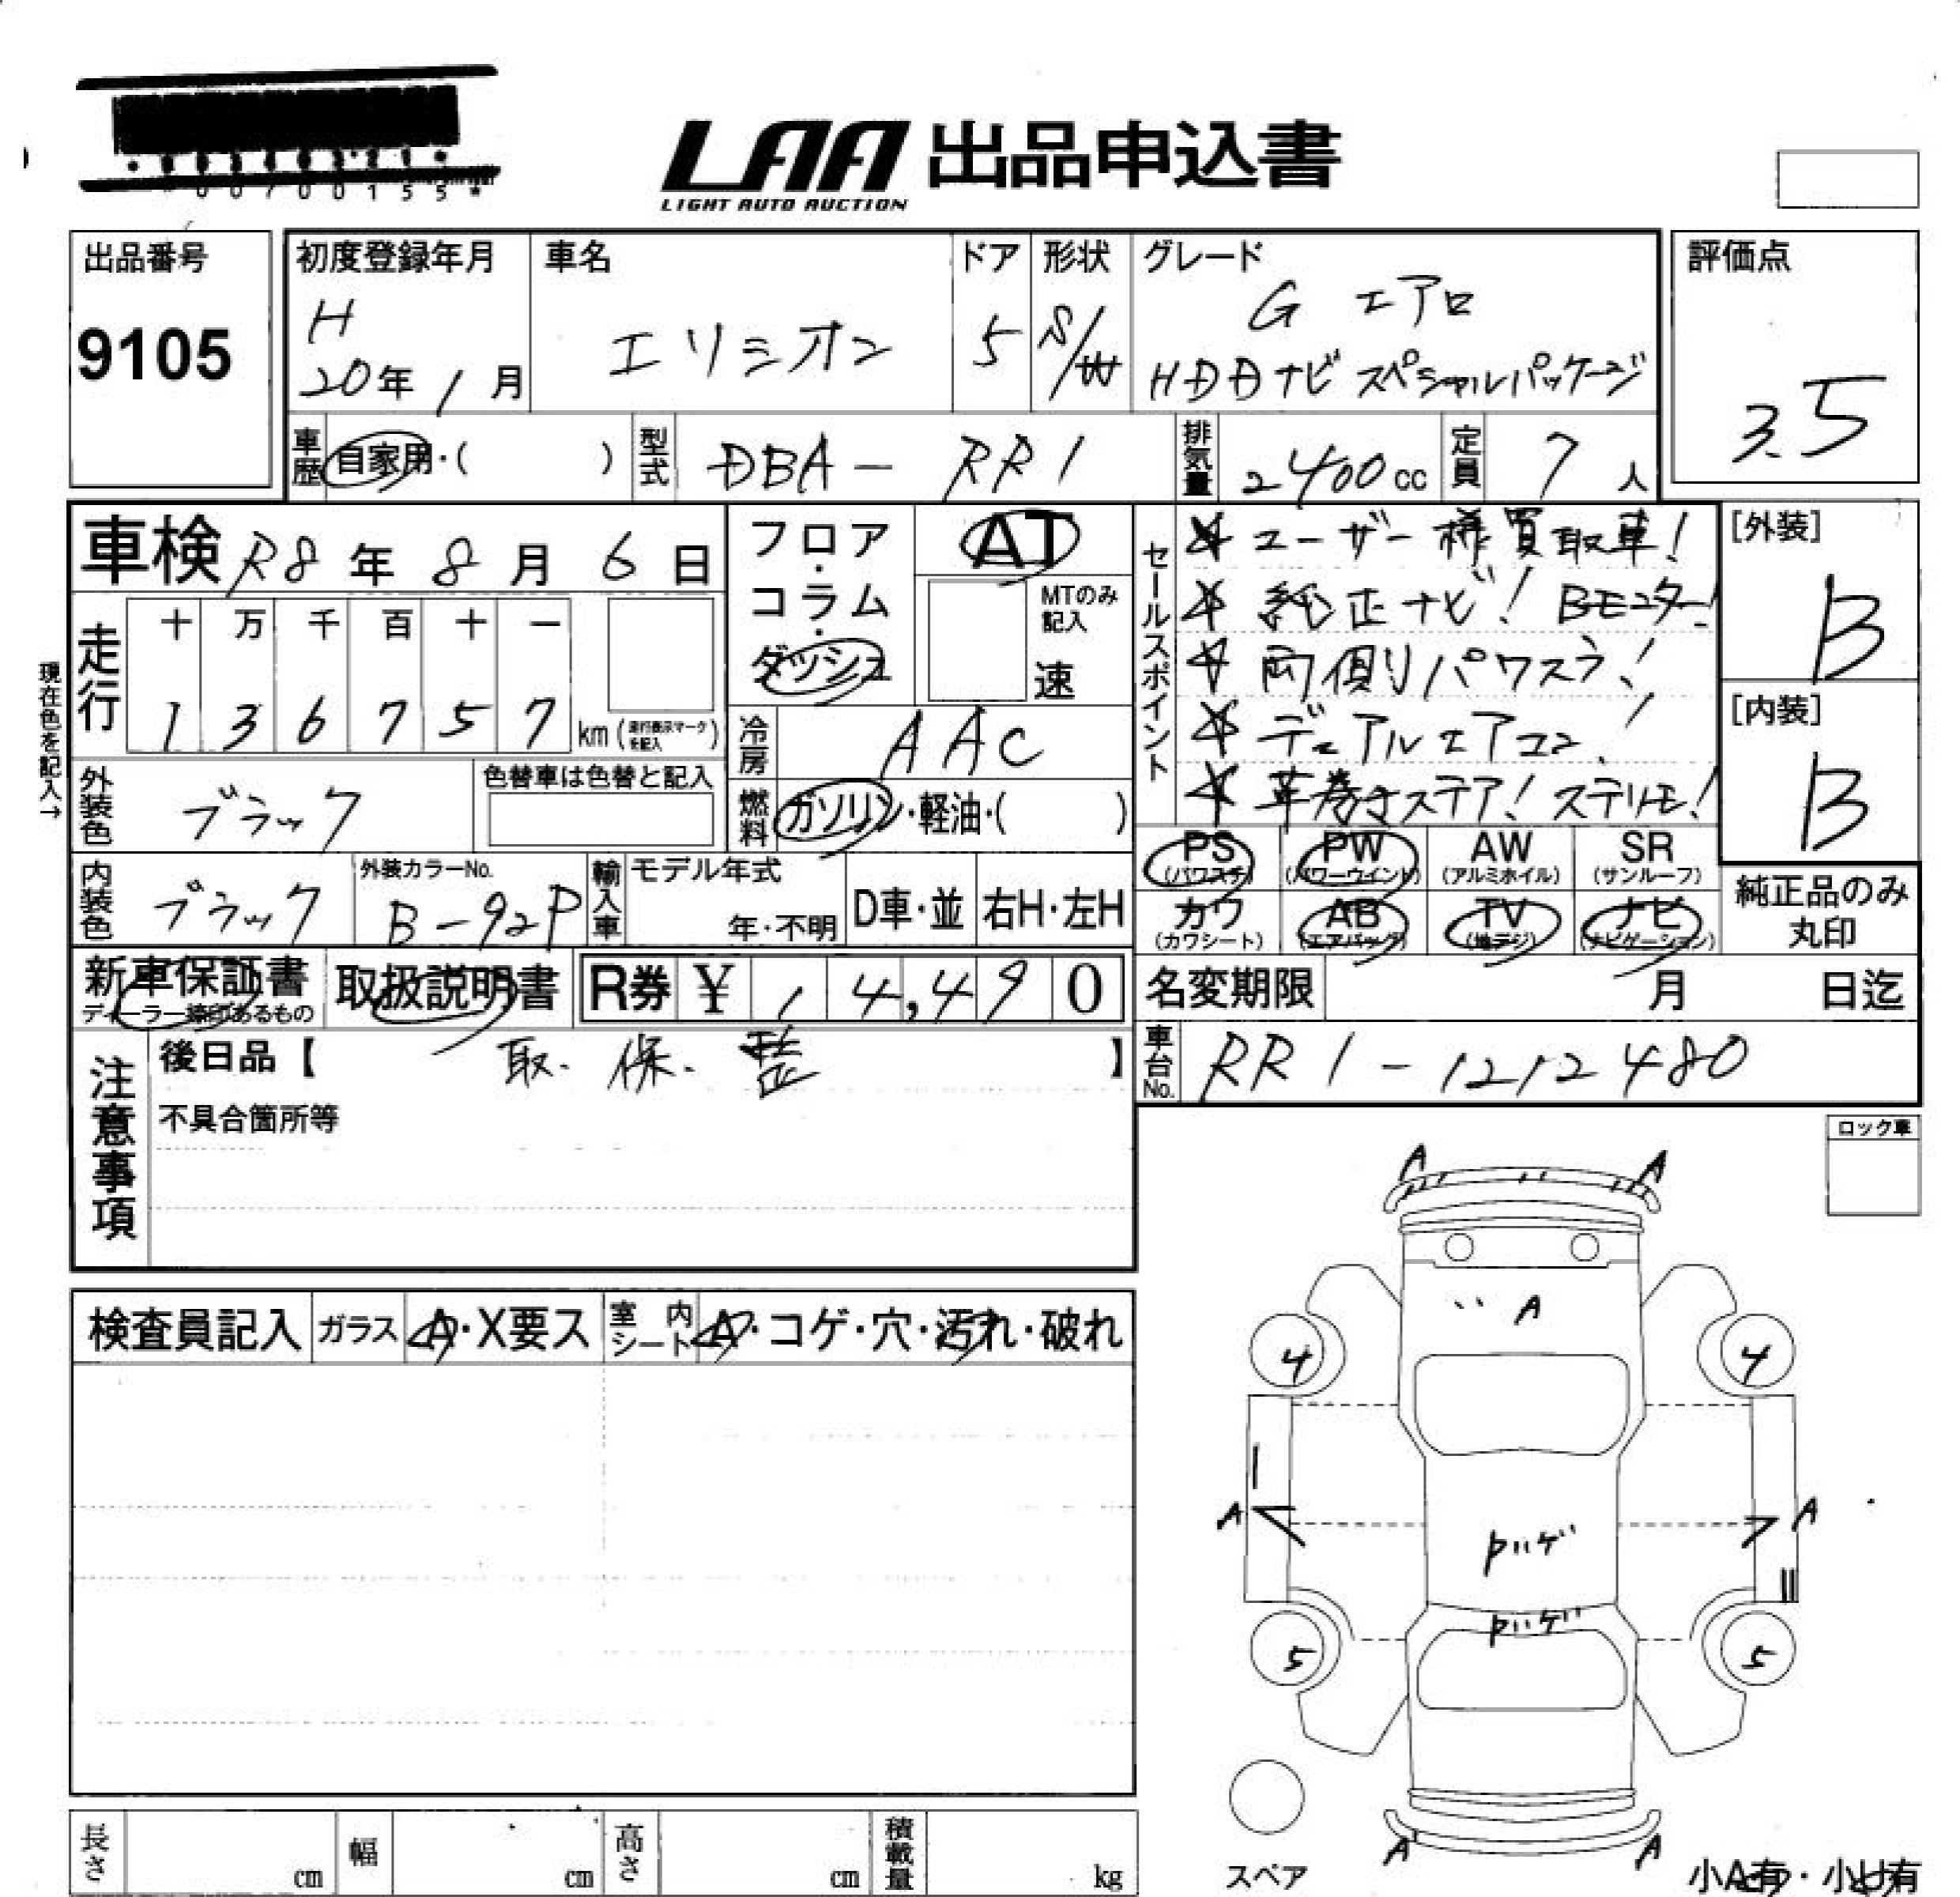 00700155*
LAA 出品申込書
LIGHT AUTO AUCTION
出品番号
9105
初度登録年月
H
20年 1月
車名
エリシオン
ドア
5
形状
S/W
グレード
G エアロ
HDDナビ スペシャルパッケージ
評価点
3.5
車歴 自家用・( )
型式 DBA-RR1
排気量 2400cc
定員 7人
車検 R8年 8月 6日
現在色を記入→
走行
十 万 千 百 十 一
1 3 6 7 5 7 km (走行表示マークを記入)
フロア・コラム・ダッシュ
AT
MTのみ記入
速
冷房 AAC
燃料 ガソリン・軽油・( )
外装色 ブラック
色替車は色替と記入
内装色 ブラック
外装カラーNo.
B-92P
輸入車
モデル年式
年・不明
D車・並
右H・左H
セールスポイント
ユーザー様買取車!
純正ナビ! Bモニター!
両側パワスラ!
デュアルエアコン!
革巻きステア! ステリモ!
[外装]
B
[内装]
B
PS
(パワステ)
PW
(パワーウインド)
AW
(アルミホイル)
SR
(サンルーフ)
カワ
(カワシート)
AB
(エアバッグ)
TV
(地デジ)
ナビ
(ナビゲーション)
純正品のみ
丸印
新車保証書
ディーラー捺印あるもの
取扱説明書
R券 ¥ 14,490
名変期限 月 日迄
車台No. RR1-1212480
注意事項
後日品【 取.保. 】
不具合箇所等
ロック車
検査員記入
ガラス A・X要ス
室内シート A・コゲ・穴・汚れ・破れ
A A
A
4 4
A A
ハゲ
ハゲ
5 5
A A
スペア
小A有・小U有
長さ cm
幅 cm
高さ cm
積載量 kg